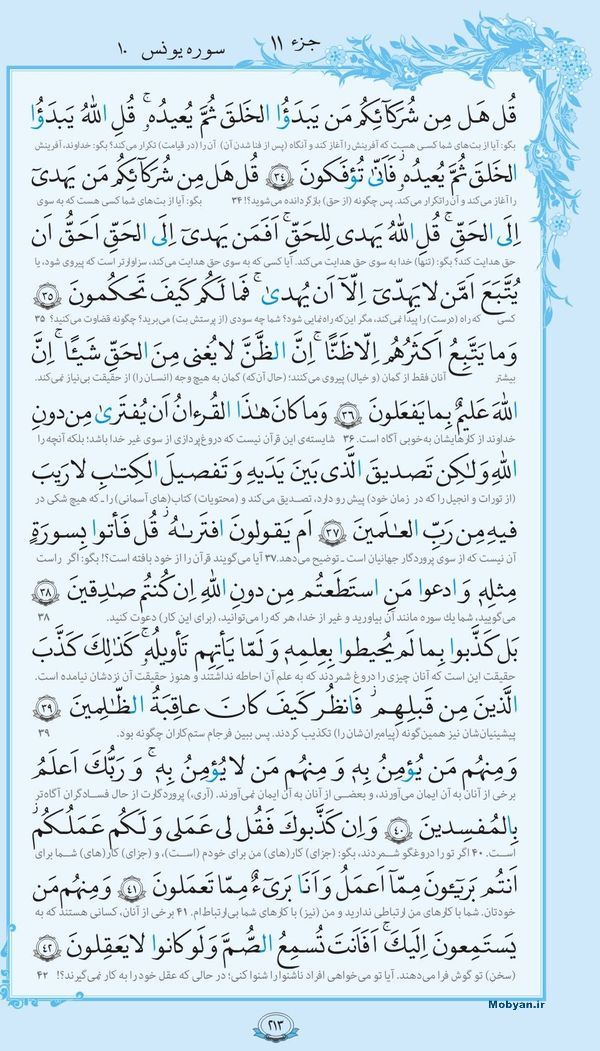 جزء ۱۱
سوره یونس ۱۰
قُل هَل مِن شُرَكآئِكُم مَن يَبدَؤُا الخَلقَ ثُمَّ يُعيدُهو ۚ قُلِ اللّٰهُ يَبدَؤُا
بگو: آیا از بت‌های شما کسی هست که آفرینش را آغاز کند و آنگاه (پس از فنا شدن آن) آن را (در قیامت) تکرار می‌کند؟ بگو: خداوند، آفرینش
الخَلقَ ثُمَّ يُعيدُهو ۖ فَاَنّىٰ تُؤفَكونَ ﴿۳۴﴾ قُل هَل مِن شُرَكآئِكُم مَن يَهدى
را آغاز می‌کند و آن را تکرار می‌کند. پس چگونه (از حق) بازگردانده می‌شوید؟! ۳۴ بگو: آیا از بت‌های شما کسی هست که به سوی
اِلَى الحَقِّ ۚ قُلِ اللّٰهُ يَهدى لِلحَقِّ ۗ اَفَمَن يَهدى اِلَى الحَقِّ اَحَقُّ اَن
حق هدایت کند؟ بگو: (تنها) خدا به سوی حق هدایت می‌کند. آیا کسی که به سوی حق هدایت می‌کند، سزاوارتر است که پیروی شود، یا
يُتَّبَعَ اَمَّن لا يَهِدّى اِلّا اَن يُهدىٰ ۖ فَما لَكُم كَيفَ تَحكُمونَ ﴿۳۵﴾
کسی که راه (درست) را پیدا نمی‌کند، مگر این‌که راه‌نمایی شود؟ شما چه سودی (از پرستش بت) می‌برید؟ چگونه قضاوت می‌کنید؟ ۳۵
وَما يَتَّبِعُ اَكثَرُهُم اِلّا ظَنًّا ۚ اِنَّ الظَّنَّ لا يُغنى مِنَ الحَقِّ شَيـًٔا ۚ اِنَّ
بیشتر آنان فقط از گمان (و خیال) پیروی می‌کنند؛ (حال آن‌که) گمان به هیچ وجه (انسان را) از حقیقت بی‌نیاز نمی‌کند.
اللّٰهَ عَليمٌ بِما يَفعَلونَ ﴿۳۶﴾ وَما كانَ هـٰذَا القُرءانُ اَن يُفتَرىٰ مِن دونِ
خداوند از کارهایشان به‌خوبی آگاه است. ۳۶ شایسته‌ی این قرآن نیست که دروغ‌پردازی از سوی غیر خدا باشد؛ بلکه آنچه را
اللّٰهِ وَلـٰكِن تَصديقَ الَّذى بَينَ يَدَيهِ وَتَفصيلَ الكِتـٰبِ لا رَيبَ
(از تورات و انجیل را که در زمان خود) پیش رو دارد، تصدیق می‌کند و (محتویات) کتاب(های آسمانی) را ـ که هیچ شکی در
فيهِ مِن رَبِّ العـٰلَمينَ ﴿۳۷﴾ اَم يَقولونَ افتَرىٰهُ ۖ قُل فَأتوا بِسورَةٍ
آن نیست که از سوی پروردگار جهانیان است ـ توضیح می‌دهد. ۳۷ آیا می‌گویند قرآن را از خود بافته است؟! بگو: اگر راست
مِثلِهٖ وَادعوا مَنِ استَطَعتُم مِن دونِ اللّٰهِ اِن كُنتُم صـٰدِقينَ ﴿۳۸﴾
می‌گویید، شما یك سوره مانند آن بیاورید و غیر از خدا، هر که را می‌توانید، (برای این کار) دعوت کنید. ۳۸
بَل كَذَّبوا بِما لَم يُحيطوا بِعِلمِهٖ وَلَمّا يَأتِهِم تَأويلُهو ۚ كَذٰلِكَ كَذَّبَ
حقیقت این است که آنان چیزی را دروغ شمردند که به علم آن احاطه نداشتند و هنوز حقیقت آن نزدشان نیامده است.
الَّذينَ مِن قَبلِهِم ۖ فَانظُر كَيفَ كانَ عاقِبَةُ الظّـٰلِمينَ ﴿۳۹﴾
پیشینیان‌شان نیز همین‌گونه (پیامبران‌شان را) تکذیب کردند. پس ببین فرجام ستم‌کاران چگونه بود. ۳۹
وَمِنهُم مَن يُؤمِنُ بِهٖ وَمِنهُم مَن لا يُؤمِنُ بِهٖ ۚ وَرَبُّكَ اَعلَمُ
برخی از آنان به آن ایمان می‌آورند، و بعضی از آنان به آن ایمان نمی‌آورند. (آری،) پروردگارت از حال فسادگران آگاه‌تر
بِالمُفسِدينَ ﴿۴۰﴾ وَاِن كَذَّبوكَ فَقُل لى عَمَلى وَلَكُم عَمَلُكُم ۖ
است. ۴۰ اگر تو را دروغگو شمردند، بگو: (جزای) کار(های) من برای خودم (است)، و (جزای) کار(های) شما برای
اَنتُم بَريٓـٔونَ مِمّا اَعمَلُ وَاَنَا بَرىٓءٌ مِمّا تَعمَلونَ ﴿۴۱﴾ وَمِنهُم مَن
خودتان. شما با کارهای من ارتباطی ندارید و من (نیز) با کارهای شما بی‌ارتباط‌ام. ۴۱ برخی از آنان، کسانی هستند که به
يَستَمِعونَ اِلَيكَ ۚ اَفَاَنتَ تُسمِعُ الصُّمَّ وَلَو كانوا لا يَعقِلونَ ﴿۴۲﴾
(سخن) تو گوش فرا می‌دهند. آیا تو می‌خواهی افراد ناشنوا را شنوا کنی؛ در حالی که عقل خود را به کار نمی‌گیرند؟! ۴۲
۲۱۳
Mobyan.ir